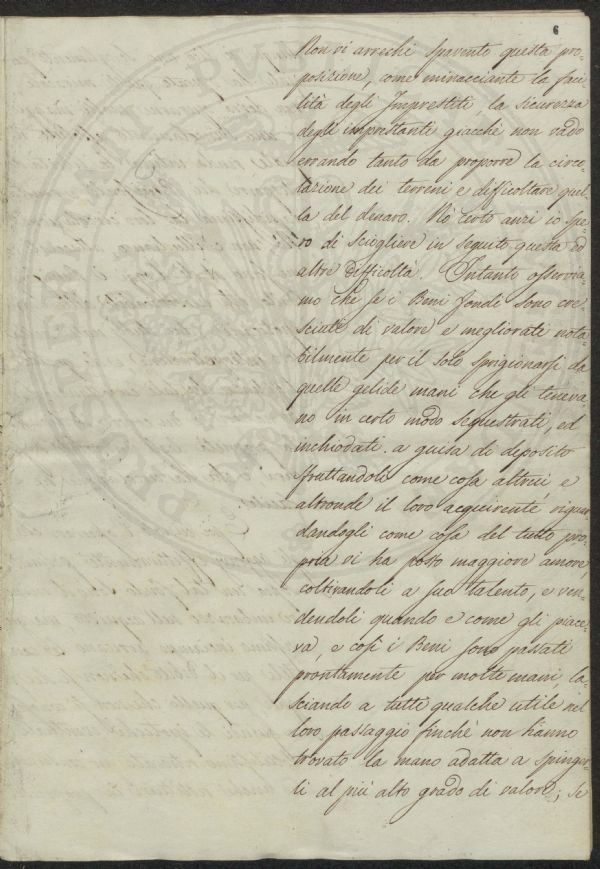 6
Non vi arrechi spavento questa pro-
posizione, come minacciante la faci-
lità degli Imprestiti, la sicurezza
degli imprestanti giacchè non vado
errando tanto da proporre la circo-
lazione dei terreni e difficoltare quel-
la del denaro. No certo anzi io spe-
ro di sciogliere in seguito questa ed
altre difficoltà. Intanto osservia-
mo che se i Beni fondi sono cre-
sciuti di valore e megliorati nota-
bilmente per il solo sprigionarsi da
quelle gelide mani che gli teneva-
no in certo modo sequestrati, ed
inchiodati a guisa di deposito
sfruttandoli come cosa altrui, e
altronde il loro acquirente, riguar-
dandogli come cosa del tutto pro-
pria vi ha posto maggiore amore,
coltivandoli a suo talento, e ven-
dendoli quando e come gli piace-
va, e così i Beni sono passati
prontamente per molte mani la-
sciando a tutti qualche utile nel
loro passaggio finchè non hanno
trovato la mano adatta a spinger-
li al più alto grado di valore; Se